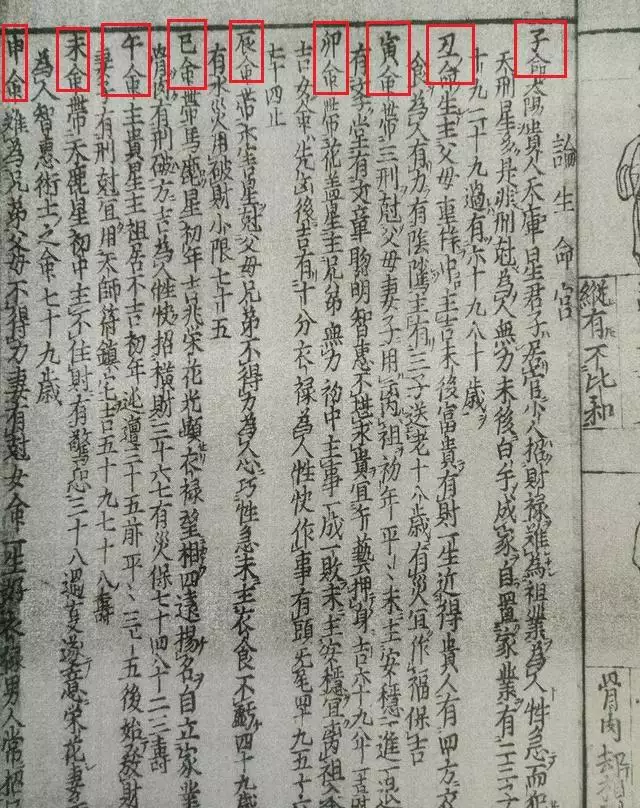 論生命宮
子命太陽貴人天庫星君子居官少人招財祿難為祖業為人性急而犯
天刑星多是非刑尅為人無力末後白手成家自置家業有二三子
十九二十九過有六十九八十歲
丑命生主父母重拜中主吉末後富貴有財一生近得貴人有四方衣
食為人有力有陰隲主有三子送老十八歲有災宜作福保吉
寅命帶三刑尅父母妻子用离祖初年平々末主安穩一進一退
有文堂有文章聦明智惠不世求貴宜有藝押身吉六十九八十吉
卯命帶花盖星主兄弟無力初中主事一成一敗末主安穩宜离祖
吉女命先凶後吉有十分衣祿為人性快作事有頭无尾四十九五十六
七十四止
辰命帶不吉星尅父母兄弟不得力為人心巧性急末主衣食不虧四十九歲
有水災用破財小限七十五
巳命帶馬鹿星初年吉兆荣花光顕衣祿望相四遠揚名自立家業
骨肉有刑破方吉為人性快招橫財三十六七有災保七十四八十二三壽
午命主真星主祖居不吉初年迍邅三十五前平々三十五後始發財
妻子有刑尅宜用天師符鎮宅吉五十九七十八壽
未命帶天鹿星初中主不住財有驚恐三十八過有稱意荣花妻
為人智惠術士之命七十九歲
申命難為兄弟父母不得力妻有尅女命一生好衣祿男人常招
縱有不比和
骨肉